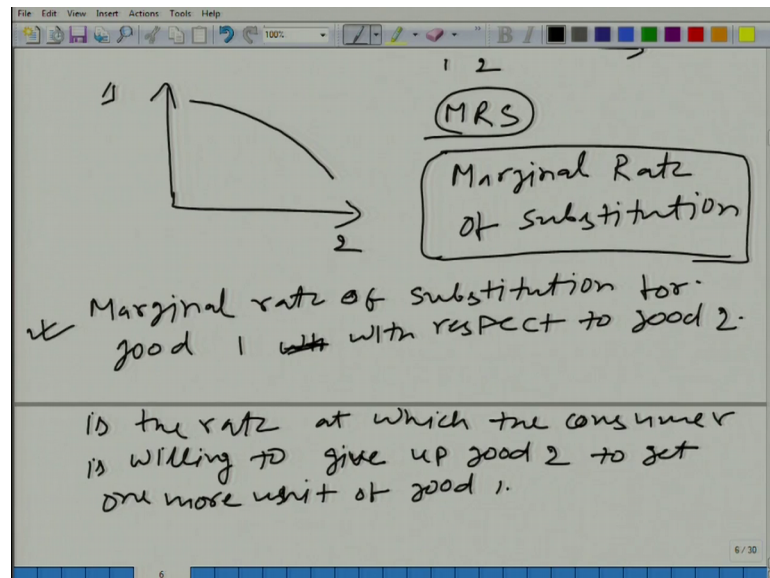 File Edit View Insert Actions Tools Help
100%
B I
1 2
1
MRS
Marginal Rate
of substitution
2
Marginal rate of substitution for
good 1 with respect to good 2.
is the rate at which the consumer
is willing to give up good 2 to get
one more unit of good 1.
6/30
6